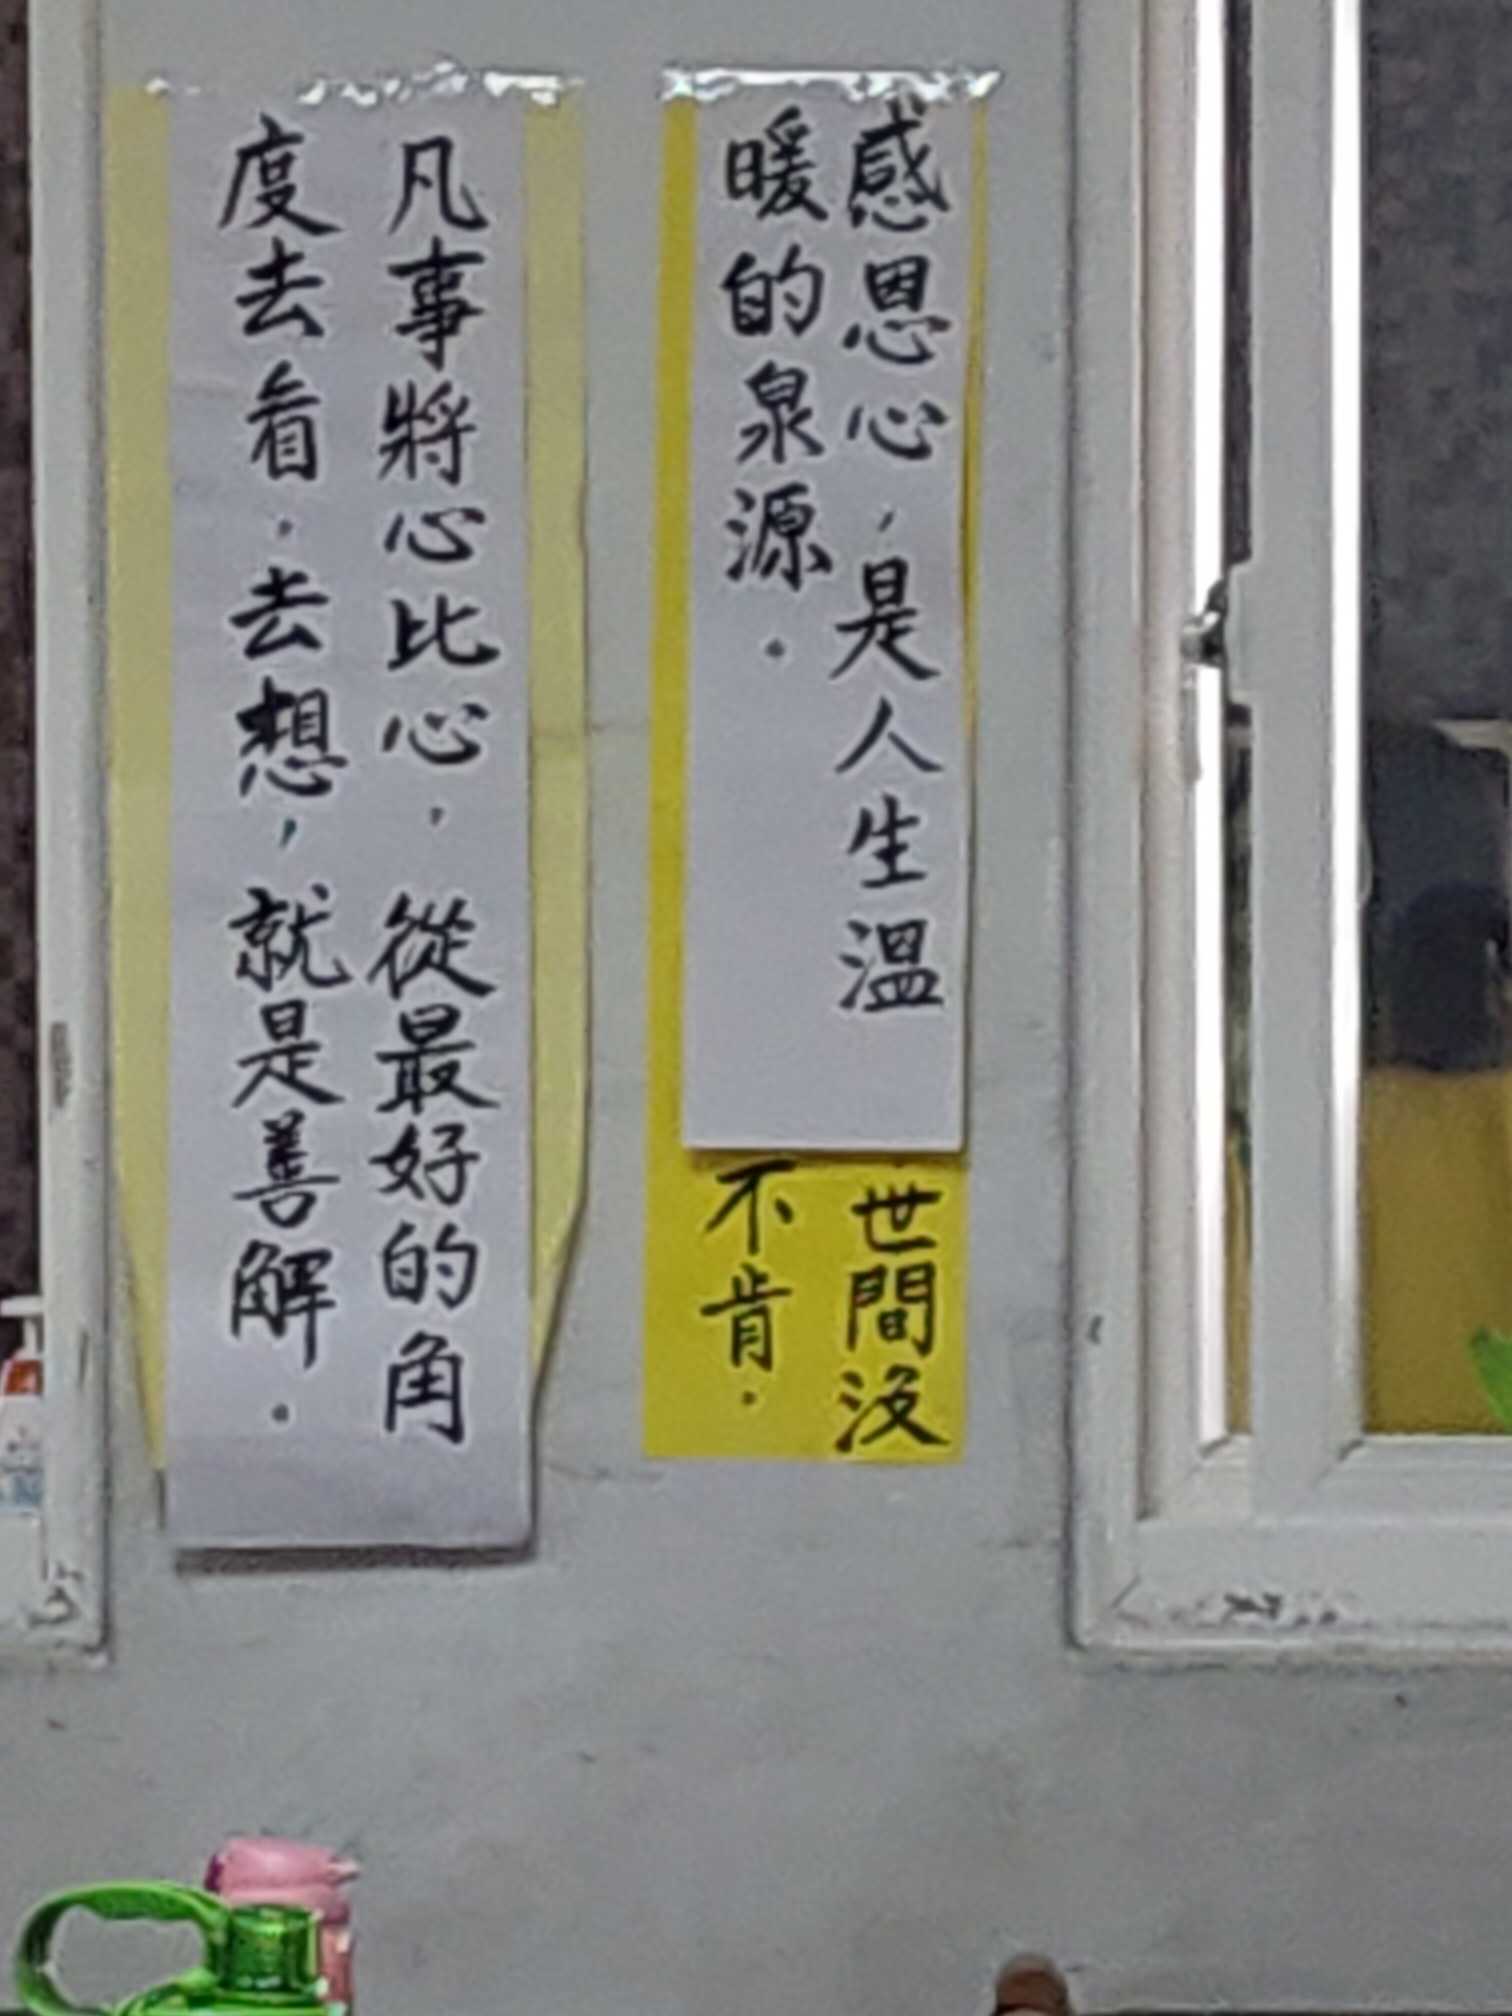 感恩心,是人生溫
暖的泉源.
世間沒
不肯.
凡事將心比心,從最好的角
度去看.去想,就是善解.